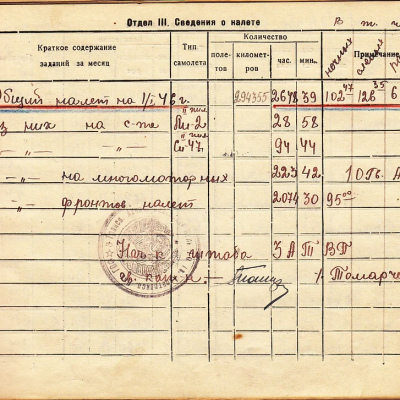 Отдел III. Сведения о налете
В т. ч.
Краткое содержание заданий за месяц
Тип самолета
Количество
поле-тов
километ-ров
час.
мин.
ночных
слепой
Примечание
Общий налет на 1/I 46 г. 294355 2678 39 102 47 126 35 6
Из них на с-те Ли-2 28 58
-„- -„- Си-47 94 44
-„- на многомоторных 2223 42
-„- фронтов. налет 2074 30 95 00
Нач-к штаба 3 АТ ВП